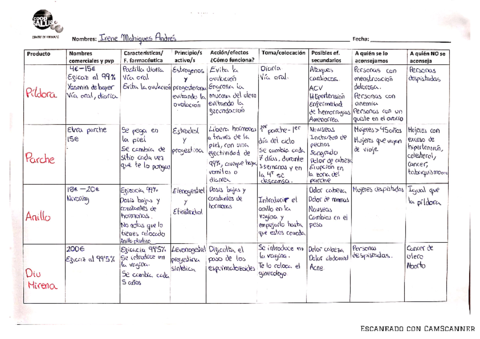 CENTRE DE FORMACIÓ
Nombres: Irene Mahiques Andrés
Fecha:
Producto
Nombres comerciales y pvp
Características/ F. farmacéutica
Principio/s activo/s
Acción/efectos ¿Cómo funciona?
Toma/colocación
Posibles ef. secundarios
A quién se lo aconsejamos
A quién NO se aconseja
Píldora
4€-15€
Eficaz al 99%
Yasmin de bayer
Vía oral, diaria
Pastilla diaria
Vía oral
Evita la ovulación
Estrogenos
y
progesterona
evitando la
ovulación
Evita la
ovulación
Engrosa la
mucosa del utero
evitando la
fecundación
Diaria
Vía oral.
Ataques
cardiacos.
ACV
Hipertensión
enfermedad
de hemorragias
Personas con
menstruación
dolorosa.
Personas con
anemia
Personas con un
quiste en el ovario
Personas
despistadas.
Parche
Evra parche
15€
Se pega en
la piel
Se cambia de
sitio cada vez
que te lo pongas
Estradiol
y
progestina
Libera hormonas
a traves de la
piel, con una
efectividad del
99%, aunque haya
vomitos o
diarrea.
1er parche-1er
día del ciclo
Se cambia cada
7 días, durante
3 semanas y en
la 4ª se
descansa.
Nauseas
Inchazon de
pechos
Sangrado
Dolor de cabeza
Erupción en
la zona del
parche
Mujeres >45años
Mujeres que vayan
de viaje.
Mujeres con
exceso de
hipertensión,
colesterol,
cancer,
tabaquismo
Anillo
18€-20€
Nuvaring
Eficacia 99%
Dosis bajas y
constantes de
hormonas.
No notas que lo
tienes colocado
Anillo plástico
Etinogestrel
y
Etinilestradiol
Dosis bajas y
constantes de
hormonas
Introducir el
anillo en la
vagina y
empujarlo hasta
que estes comoda.
Dolor cabeza.
Dolor de mamas
Nauseas
Cambios en el
peso
Mujeres despistadas
Igual que
la píldora.
Diu
Mirena
200€
Eficaz al 99'5%
Eficacia 99'5%
Se introduce en
la vagina.
Se cambia cada
5 años
Levonogestrel
progestina
sintética,
Dificulta el
paso de los
espermatozoides
Se introduce en
la vagina.
Te lo coloca el
ginecologo
Dolor cabeza
Dolor abdominal
Acne
Personas
despistadas.
Cancer de
utero
Aborto
ESCANEADO CON CAMSCANNER